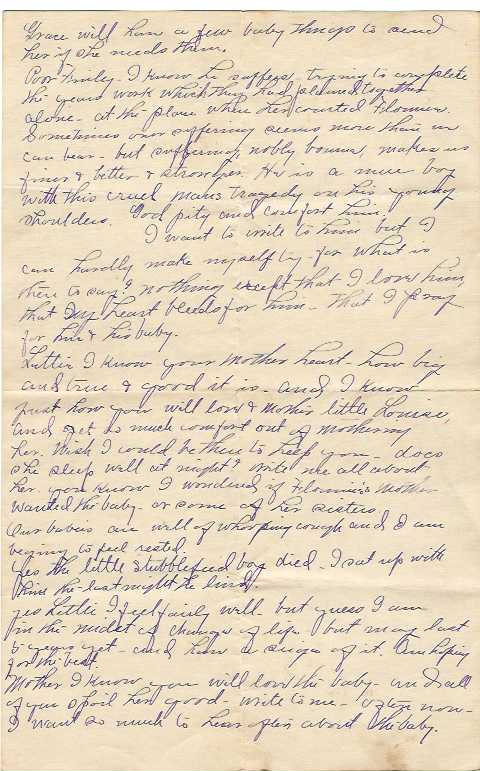 Grace will have a few baby things to send
her if she needs them.
Poor Finley - I know he suffers - trying to complete
the years work which they had planned together
alone - at the place where he courted Flonnie.
Sometimes our suffering seems more than we
can bear - but suffering nobly bourne, makes us
finer & better & stronger. He is a mere boy
with this cruel mans tragedy on his young
shoulders. God pity and comfort him.
I want to write to him but I
can hardly make myself try - for what is
there to say? nothing except that I love him,
that my heart bleeds for him - that I pray
for him & his baby.
Littie I know your Mother heart - how big
and true & good it is - and I know
just how you will love & Mother little Louise,
and get so much comfort out of mothering
her. Wish I could be there to help you - does
she sleep well at night? write me all about
her. you know I wondered if Flonnie's Mother
wanted the baby - or some of her sisters.
Our babies are well of whooping cough and I am
beging to feel rested.
yes the little Stubblefield boy died - I sat up with
him the last night he lived.
yes Littie I feel fairly well - but guess I am
in the midst of change of life - but may last
5 years yet - and have a siege of it. Am hoping
for the best.
Mother I know you will love the baby - and all
of you spoil her good - write to me - often now -
I want so much to hear often about the baby.